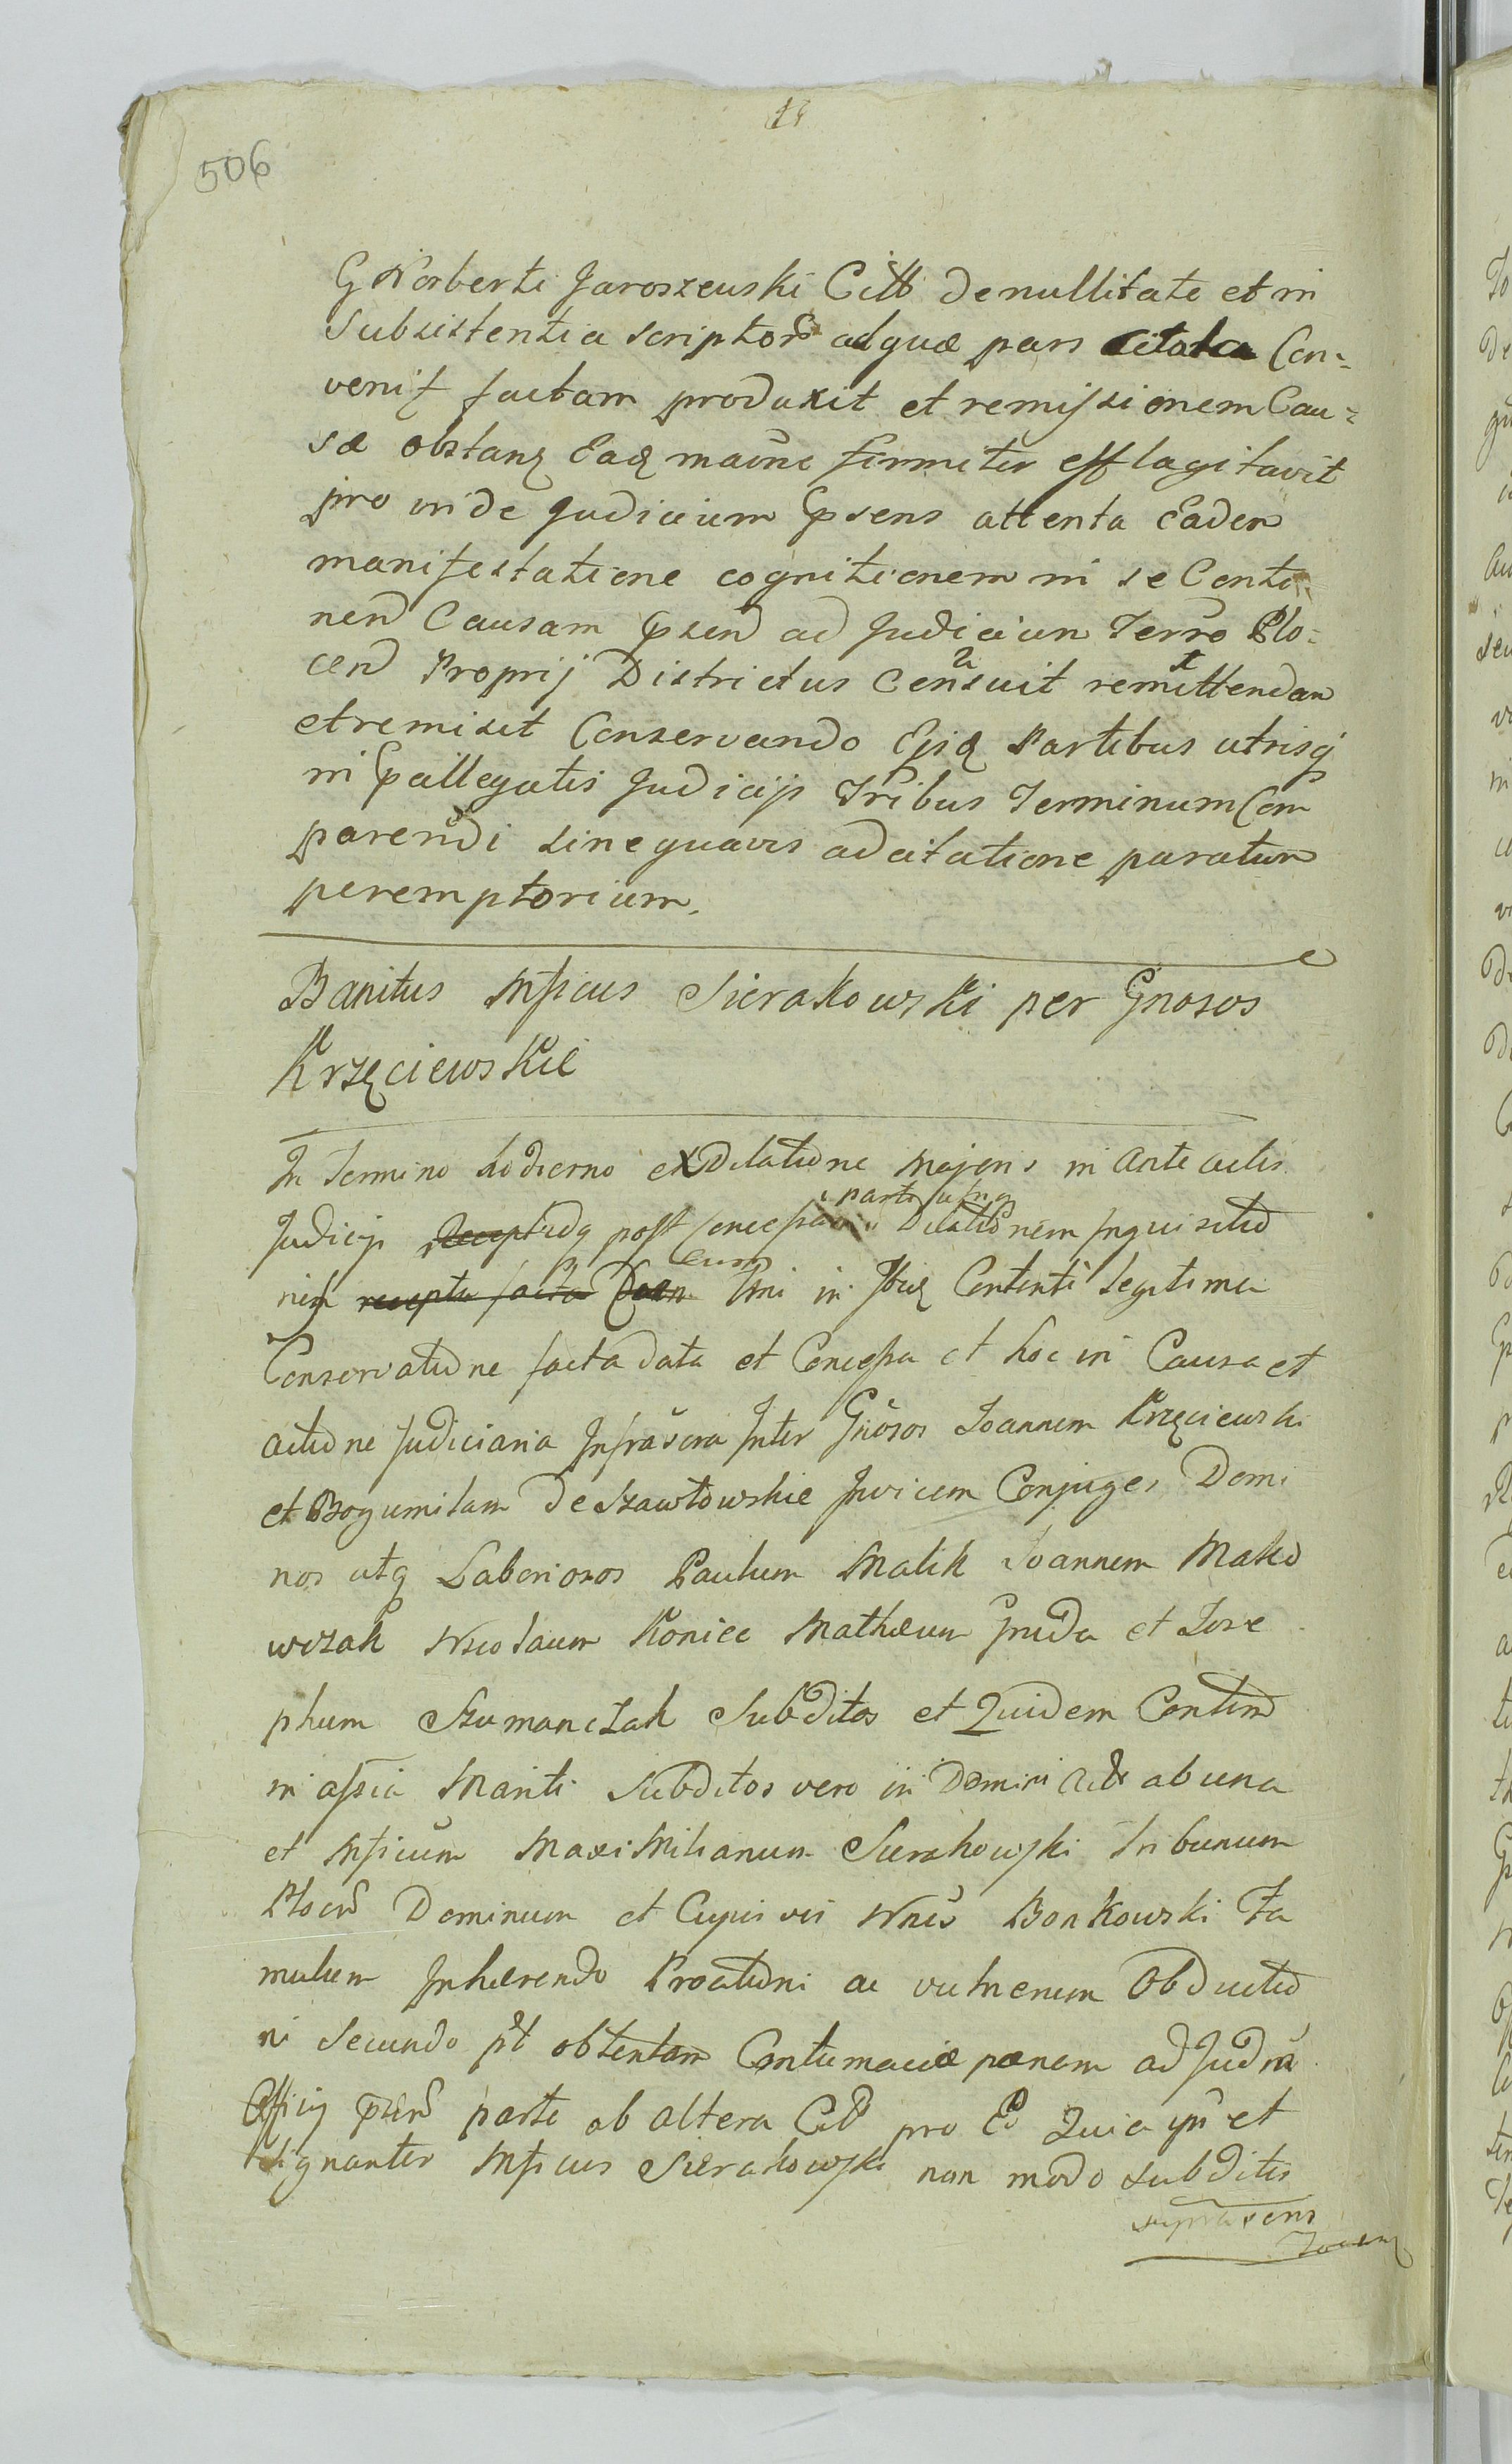 506
G Norberti Jaroszewski Citt de nullitate et in
subsistentia scriptor ad quæ pars citata Con=
venit factam produxit et remissionem Cau=
sæ obstanq Eadq firmiter efflagitavit
pro inde Judicium Ppsens attenta Eadem
manifestatione cognitionem in se Conti
nen Causam Ppsen ad Judicium Terre Plo=
cen Proprij Districtus Censuit remittendam
et remisit Conservando Ejsq Partibus utrisq
in Ppallegatis Judicijs Tribus Terminum Com
parendi sine quavis adcitatione paratum
peremptorium.
Banitus Mficus Sierakowski per Gnosos
Krzęciewskie
In Termino hodierno ex Dilatione Majoris in Anteactis
parti utrq
Judicij post Concessam Dilationem Inquisitio
eum
nis recepta facta Tmi in Ibiq Contenti legitima
Conservatione facta data et Concessa et hoc in Causa et
actione Judiciaria Infrascra Inter Gnosos Joannem Krzęciewski
et Bogumilam de Szawłowskie Invicem Conjuges Domi
nos utq Laboriosos Paulum Malik Joannem Mako
wczak Nicolaum Koniec Mathæum Gruda et Jose
phum Szumanczak Subditos et Quidem Contin
in assia Mariti Subditos vero in Domini Act ab una
et Mficum Maximilianum Sierakowski Tribunum
Plocen Dominum et Cujus vis Nnis Bonkowski Fa
mulum Inhærendo Proationi ac vulnerum Obductio
ni Secundo pt obtentam Contumaciæ pænam ad Judm
Officij psen parte ab altera Citt pro Eo Quia ipsi et
signanter Mficus Sierakowski non modo subditis
suprascris